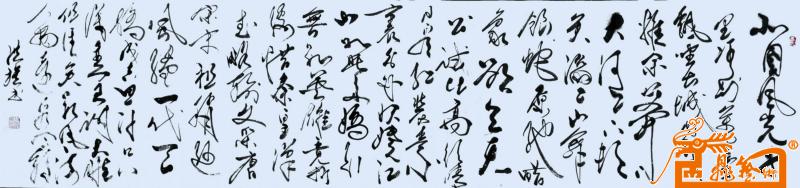 北国风光千
里冰封万里雪
飘望长城内外
惟余莽莽
大河上下顿
失滔滔山舞
银蛇原驰蜡
象欲与天
公试比高须晴
日看红装素
裹分外妖娆江
山如此多娇引
无数英雄竞折
腰惜秦皇汉
武略输文采唐
宗宋祖稍逊
风骚一代天
骄成吉思汗只
识弯弓射大雕
俱往矣数风流
人物还看今朝